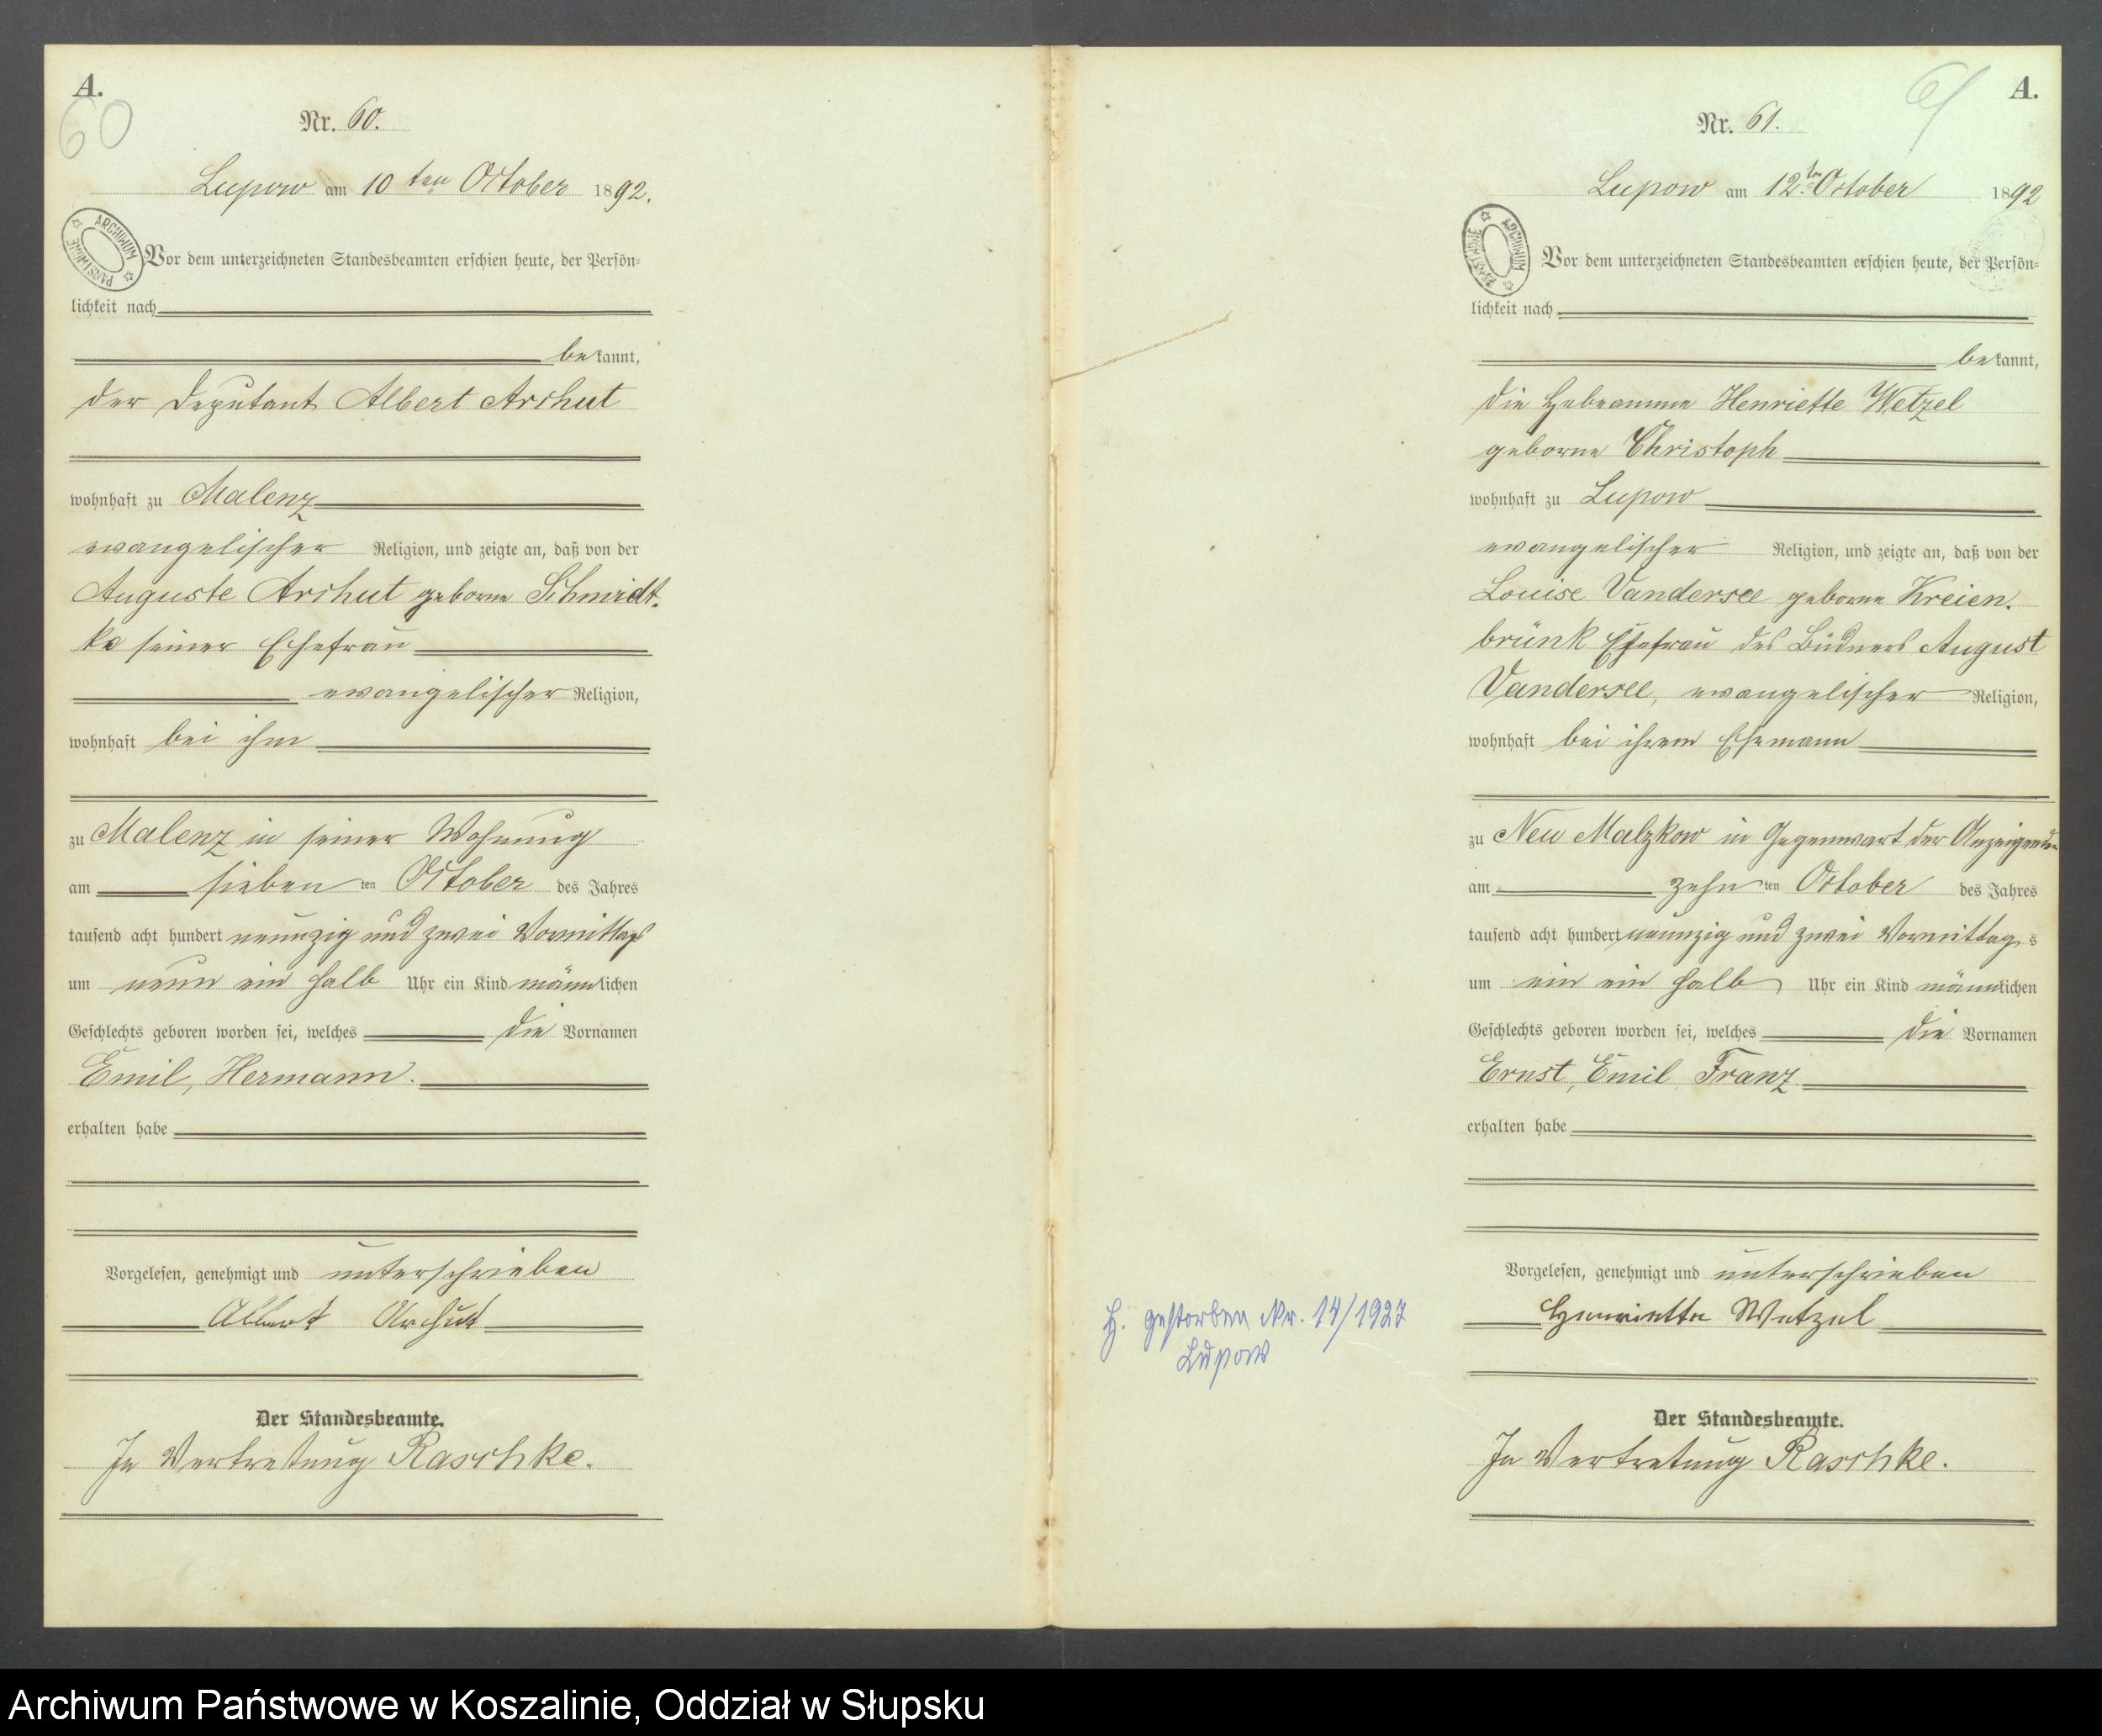 A.
60
Nr. 60.
Lupow am 10 ten October 1892.
ARCHIWUM PAŃSTWOWE
Vor dem unterzeichneten Standesbeamten erschien heute, der Persön=
lichkeit nach
bekannt,
der Deputant Albert Archut
wohnhaft zu Malenz
evangelischer Religion, und zeigte an, daß von der
Auguste Archut geborne Schmidt.
ke seiner Ehefrau
evangelischer Religion,
wohnhaft bei ihm
zu Malenz in seiner Wohnung
am sieben ten October des Jahres
tausend acht hundert neunzig und zwei Vormittags
um neun ein halb Uhr ein Kind männlichen
Geschlechts geboren worden sei, welches die Vornamen
Emil, Hermann.
erhalten habe
Vorgelesen, genehmigt und unterschrieben
Albert Archut
Der Standesbeamte.
In Vertretung Raschke.
A.
61
Nr. 61.
Lupow am 12ten October 1892
ARCHIWUM PAŃSTWOWE
Vor dem unterzeichneten Standesbeamten erschien heute, der Persön=
lichkeit nach
bekannt,
die Hebeamme Henriette Wetzel
geborne Christoph
wohnhaft zu Lupow
evangelischer Religion, und zeigte an, daß von der
Louise Vandersee geborne Kreien.
brünk Ehefrau des Büdners August
Vandersee, evangelischer Religion,
wohnhaft bei ihrem Ehemann
zu Neu Malzkow in Gegenwart der Anzeigenden
am zehn ten October des Jahres
tausend acht hundert neunzig und zwei Vormittags
um ein ein halb Uhr ein Kind männlichen
Geschlechts geboren worden sei, welches die Vornamen
Ernst, Emil, Franz
erhalten habe
Vorgelesen, genehmigt und unterschrieben
Henriette Wetzel
H. gestorben Nr. 14/1927
Lupow
Der Standesbeamte.
In Vertretung Raschke.
Archiwum Państwowe w Koszalinie, Oddział w Słupsku